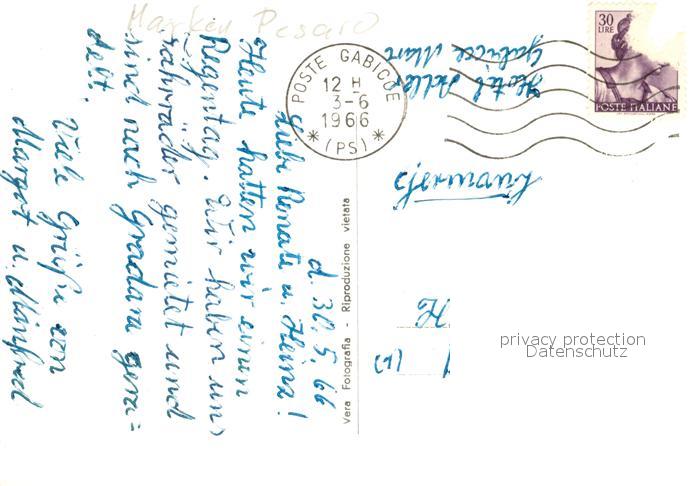 Marken Pesaro
d. 31.5.66
Liebe Renate u. Heinz!
Heute hatten wir einen
Regentag. Wir haben uns
Fahrräder gemietet und
sind nach Gradara gera=
delt.
Viele Grüße von
Margot u. Manfred
Vera Fotografia - Riproduzione vietata
POSTE GABICCE
12 H
3-6
1966
* (PS) *
30
LIRE
POSTE ITALIANE
Hotel Adler
Gabicce Mare
privacy protection
Datenschutz